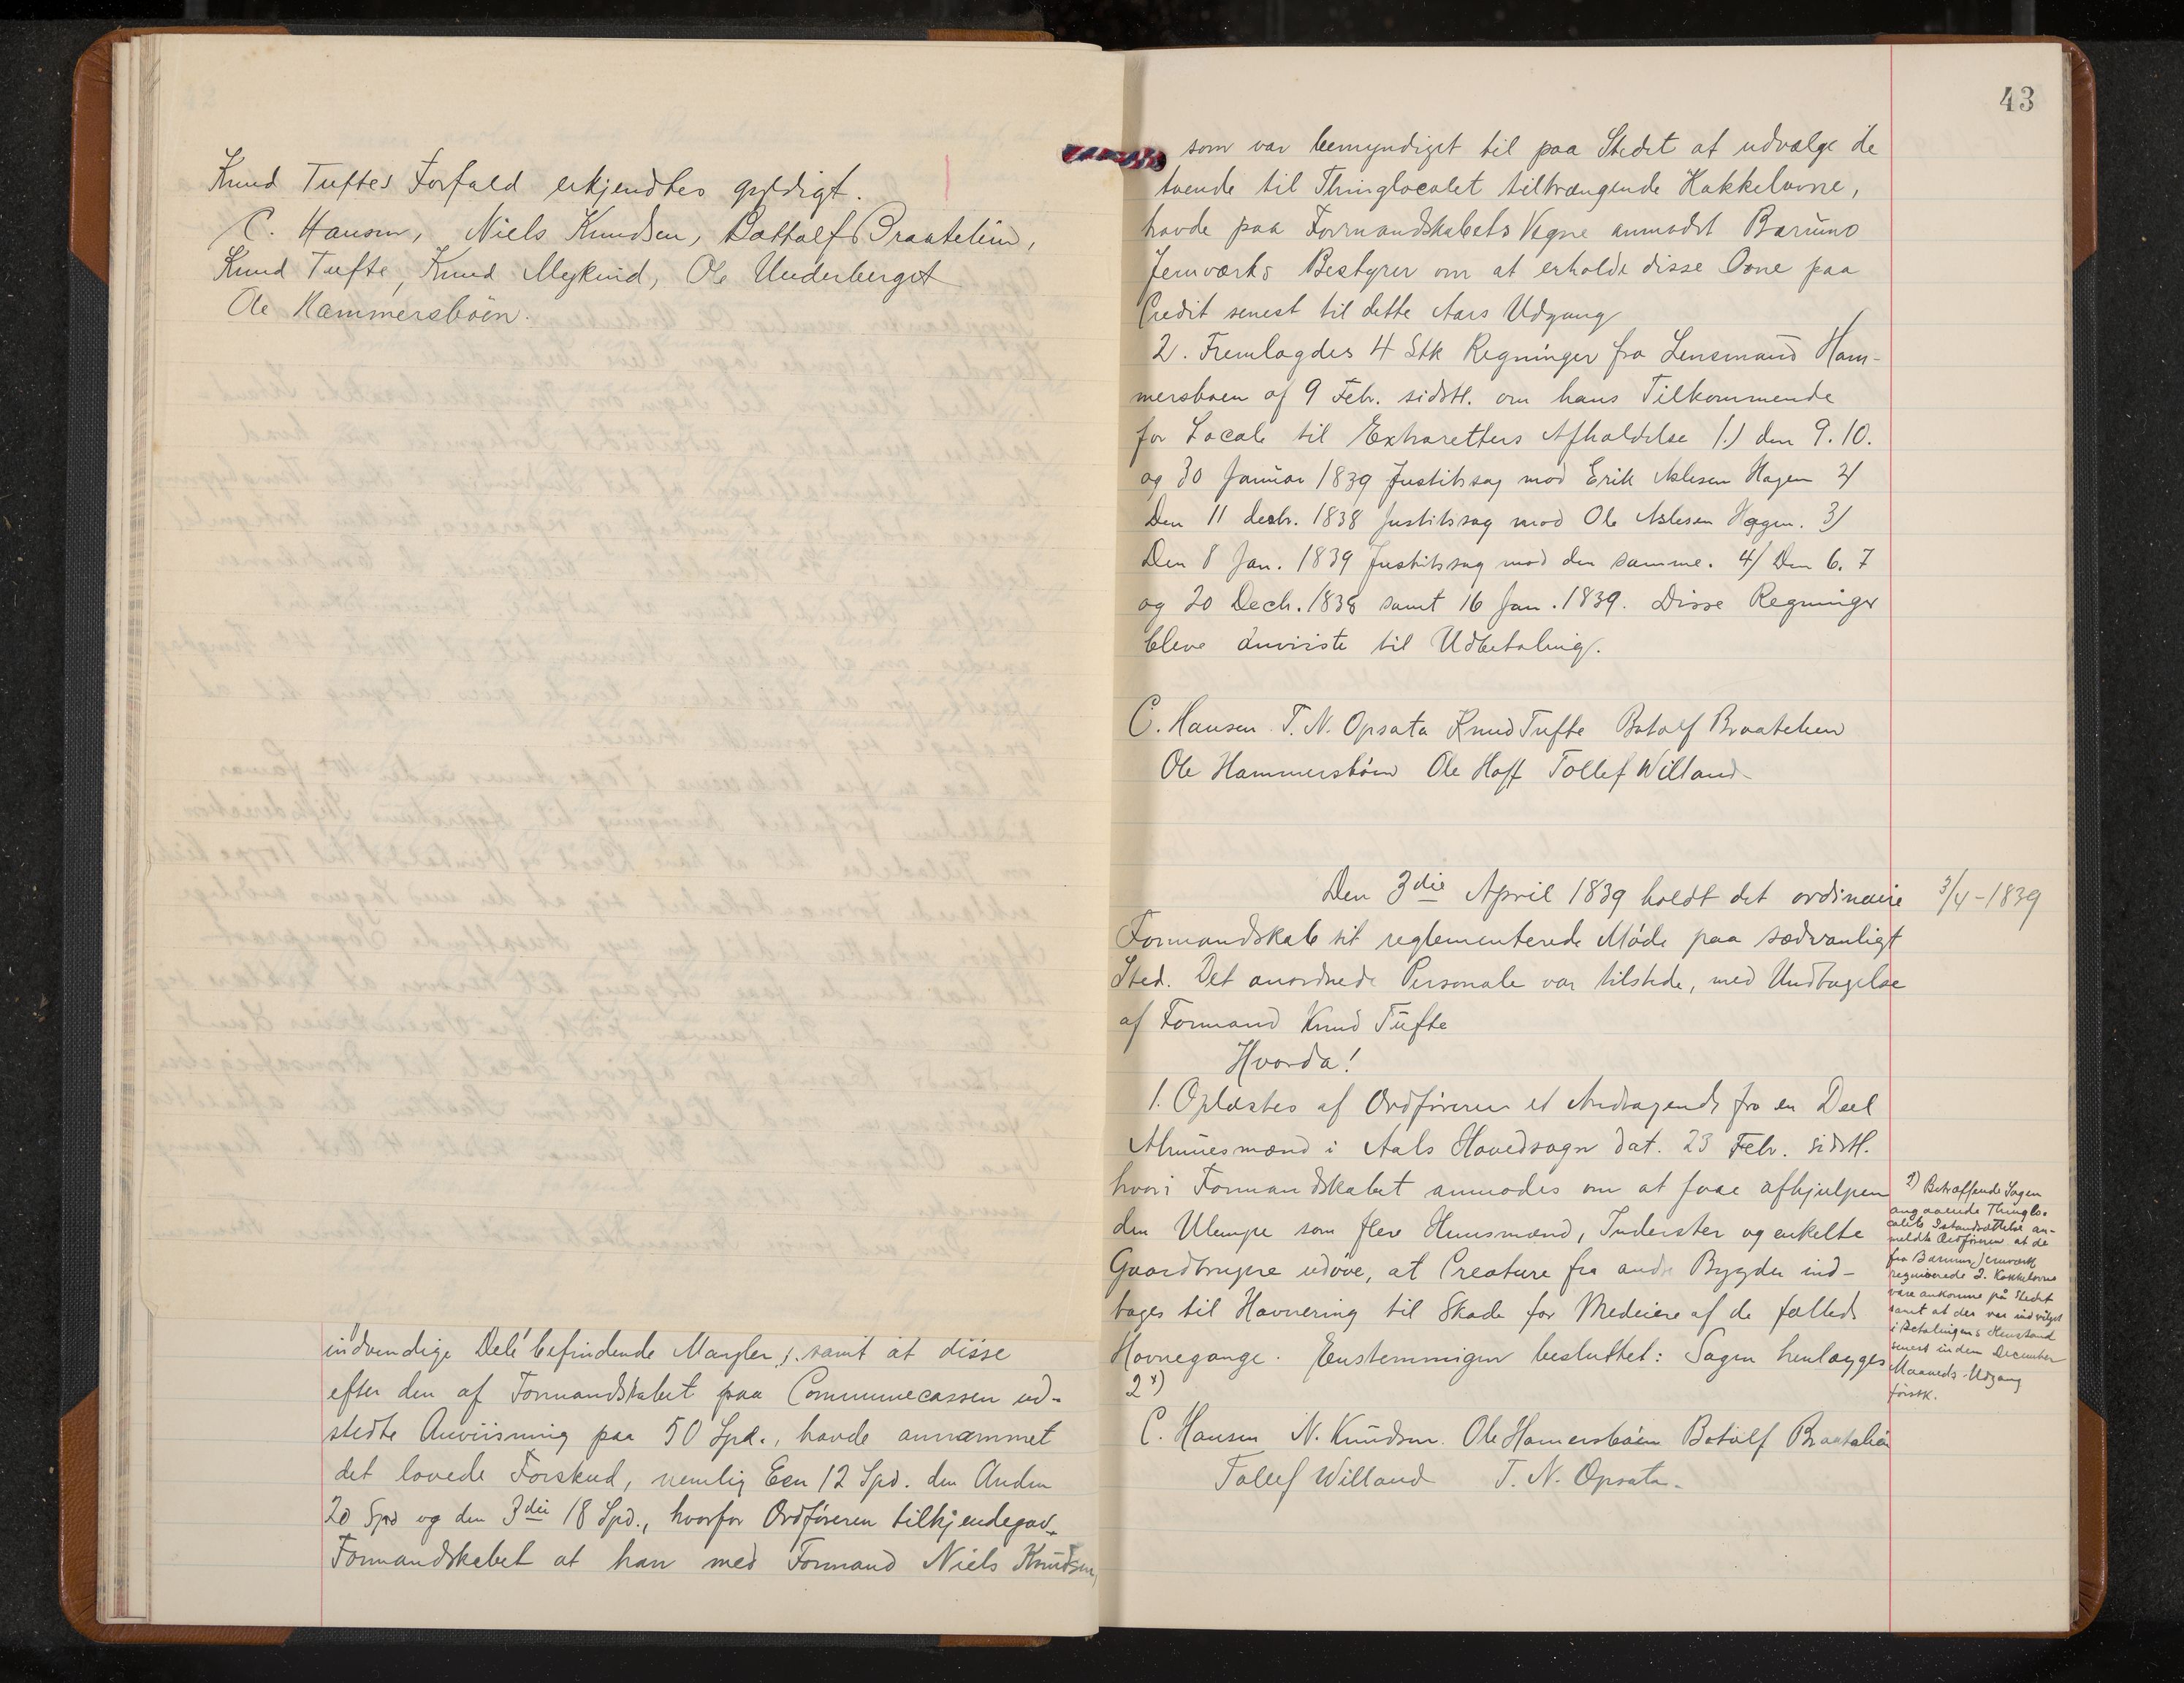 Knud Tuftes Forfald erkjendtes gyldigt.
C. Hansen, Niels Knudsen, Bottolf Braatelien,
Knud Tufte, Knud Mejkind, Ole Underberget
Ole Hammersböen.
indvendige Dele befindende Mangler, samt at disse
efter den af Formandskabet paa Communecassen ud-
stedte Anviisning paa 50 Spd., havde annammet
det lovede Forskud, nemlig Een 12 Spd. den Anden
20 Spd og den 3die 18 Spd., hvorfor Ordföreren tilkjendegav
Formandskabet at han med Formand Niels Knudsen,
43
som var bemyndiget til paa Stedet at udvælge de
tvende til Thinglocalet tiltrængende Kakkelovne,
havde paa Formandskabets Vegne anmodet Bærums
Jernværks Bestyrer om at erholde disse Ovne paa
Credit senest til dette Aars Udgang
2. Fremlagdes 4 Stk Regninger fra Lensmand Ham-
mersboen af 9 Febr. sidstl. om hans Tilkommende
for Locale til Extraretters Afholdelse 1.) den 9. 10.
og 30 Januar 1839 Justitssag mod Erik Aslesen Hagen 2/
Den 11 decbr. 1838 Justitssag mod Ole Aslesen Hagen. 3/
Den 8 Jan. 1839 Justitssag mod den samme. 4/ Den 6. 7
og 20 Decb. 1838 samt 16 Jan. 1839. Disse Regninger
bleve anviiste til Udbetaling.
C. Hansen T. N. Opsata Knud Tufte Botolf Braatelien
Ole Hammersböen Ole Hoff Tollef Willand
Den 3die April 1839 holdt det ordinaire
3/4-1839
Formandskab sit reglementerede Möde paa sædvanligt
Sted. Det anordnede Personale var tilstede, med Undtagelse
af Formand Knud Tufte
Hvorda!
1. Oplæstes af Ordföreren et Andragende fra en Deel
Almuesmænd i Aals Hovedsogn dat. 23 Febr. sidstl.
hvori Formandskabet anmodes om at faae afhjulpen
den Ulempe som flere Huusmænd, Inderster og enkelte
Gaardbrugere udöve, at Creature fra andre Bygder ind-
tages til Havnering til Skade for Medeiere af de fælleds
Havnegange. Eenstemmigen besluttet: Sagen henlægges
2 x)
x) Betræffende Sagen
angaaende Thinglo-
calets Istandsættelse an-
meldte Ordföreren at de
fra Bærums Jernværk
requirerede 2. Kakkelovne
vare ankomne på Stedet
samt at der var indvilget
i Betalingens Henstand
senest inden December
Maaneds Udgang
förstk.
C. Hansen N. Knudsen. Ole Hamersböen Botolf Braatelien
Tollef Willand T. N. Opsata.